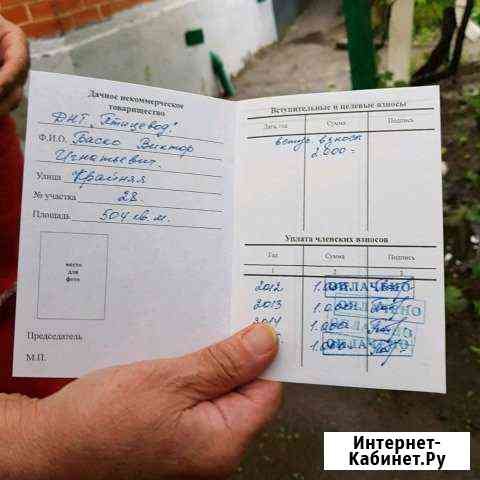 Дачное некоммерческое
товарищество
ДНТ "Птицевод"
Ф.И.О. Баско Виктор
Игнатьевич
Улица Крайняя
№ участка 28
Площадь 504 кв.м.
место
для
фото
Председатель
М.П.
Вступительные и целевые взносы
Дата, год Сумма Подпись
вступ. взносы
2.000=
Уплата членских взносов
Год Сумма Подпись
1 2 3
2012 1.000 ОПЛАЧЕНО
2013 1.000 ОПЛАЧЕНО
2014 1.000 ОПЛАЧЕНО
1.000 ОПЛАЧЕНО
Интернет-
Кабинет.Ру